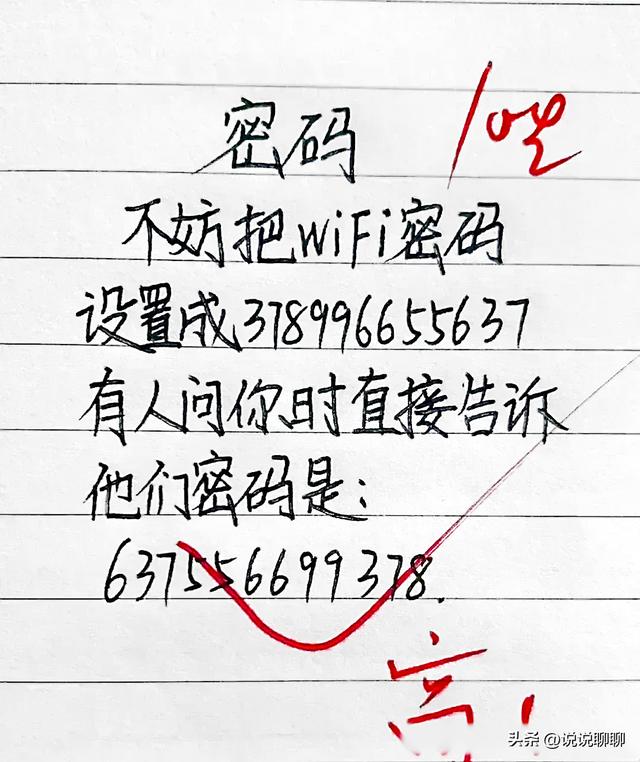 密码
不妨把WiFi密码
设置成378996655637
有人问你时直接告诉
他们密码是：
637556699378.
高！
头条 @说说聊聊